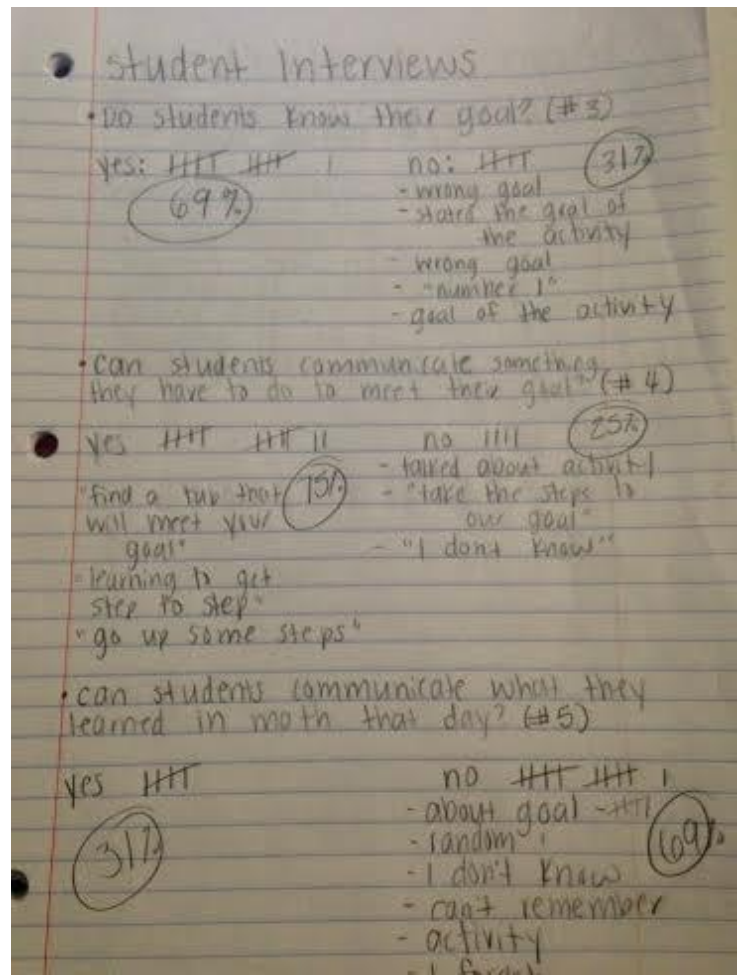 Student Interviews
• Do students know their goal? (#3)
yes: 卌 卌 | no: 卌 31%
69%
- wrong goal
- stated the goal of
the activity
- wrong goal
- "number 1"
- goal of the activity
• can students communicate something
they have to do to meet their goal? (#4)
yes 卌 卌 || no |||| 25%
75%
"find a tub that
will meet your
goal"
"learning to get
step to step"
"go up some steps"
- talked about activity
- "take the steps to
our goal"
- "I don't know"
• can students communicate what they
learned in math that day? (#5)
yes 卌 no 卌 卌 |
31%
69%
- about goal -
- random
- I don't know
- can't remember
- activity
- I forgot